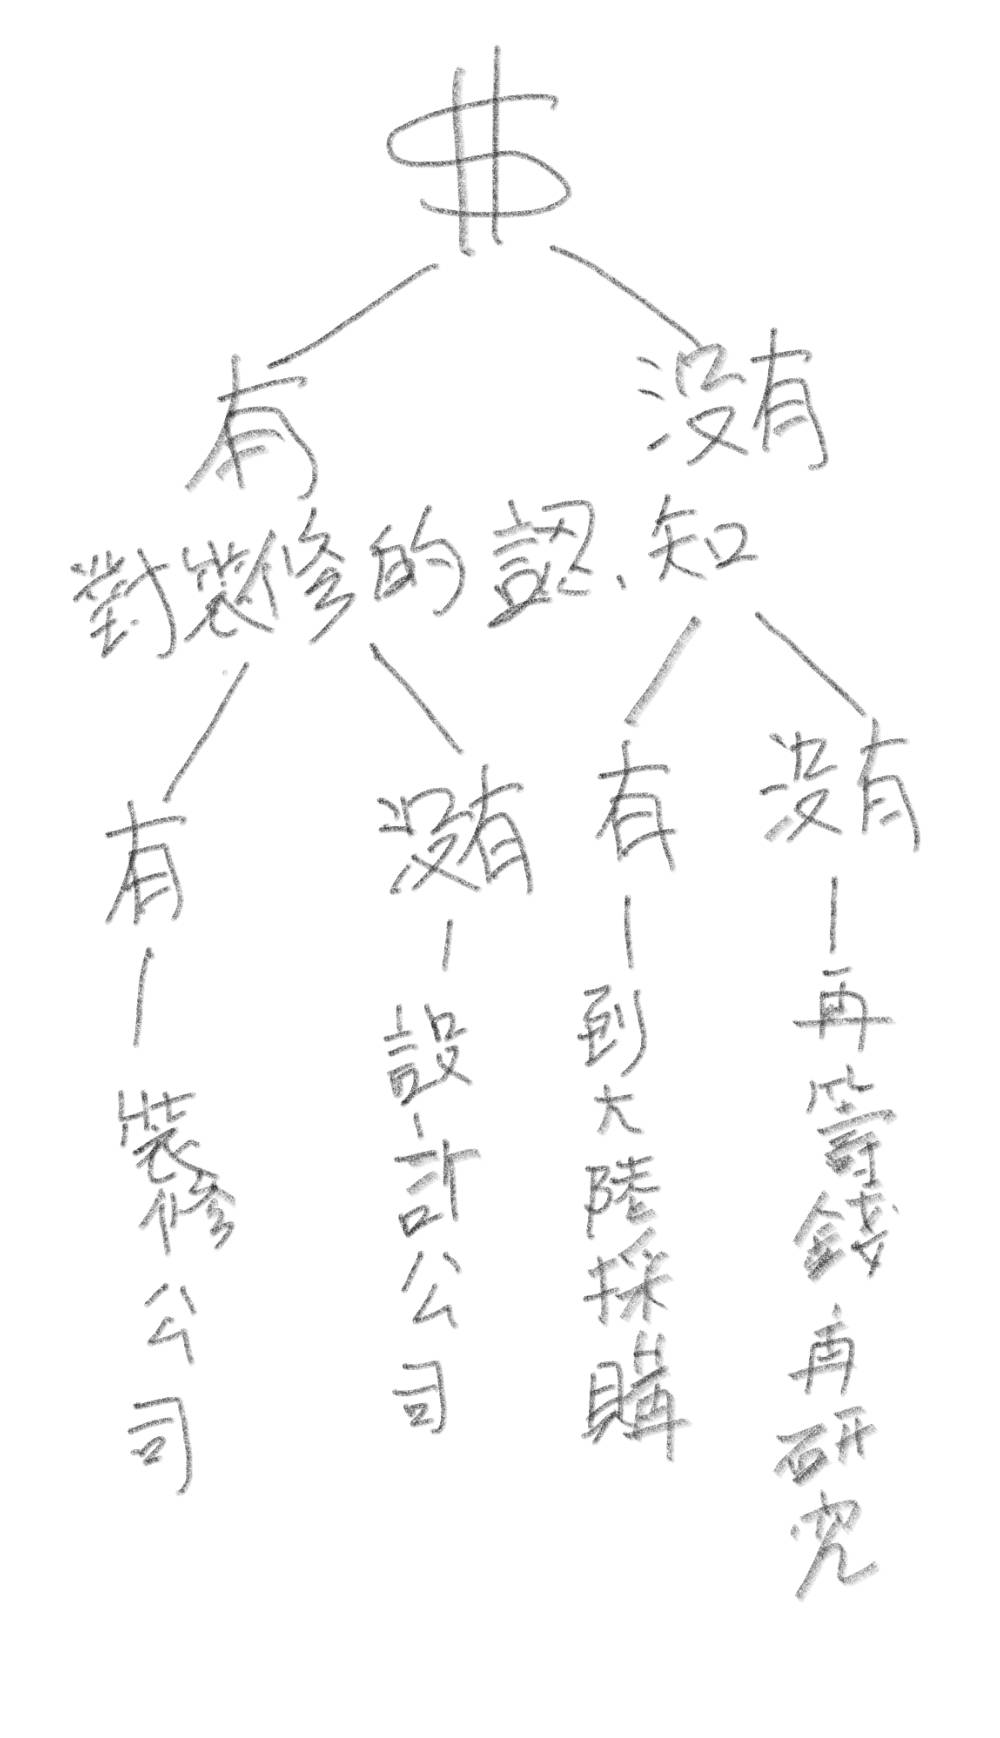 $
有 沒有
對裝修的認知
有 沒有 有 沒有
裝修公司
設計公司
到大陸採購
再籌錢再研究